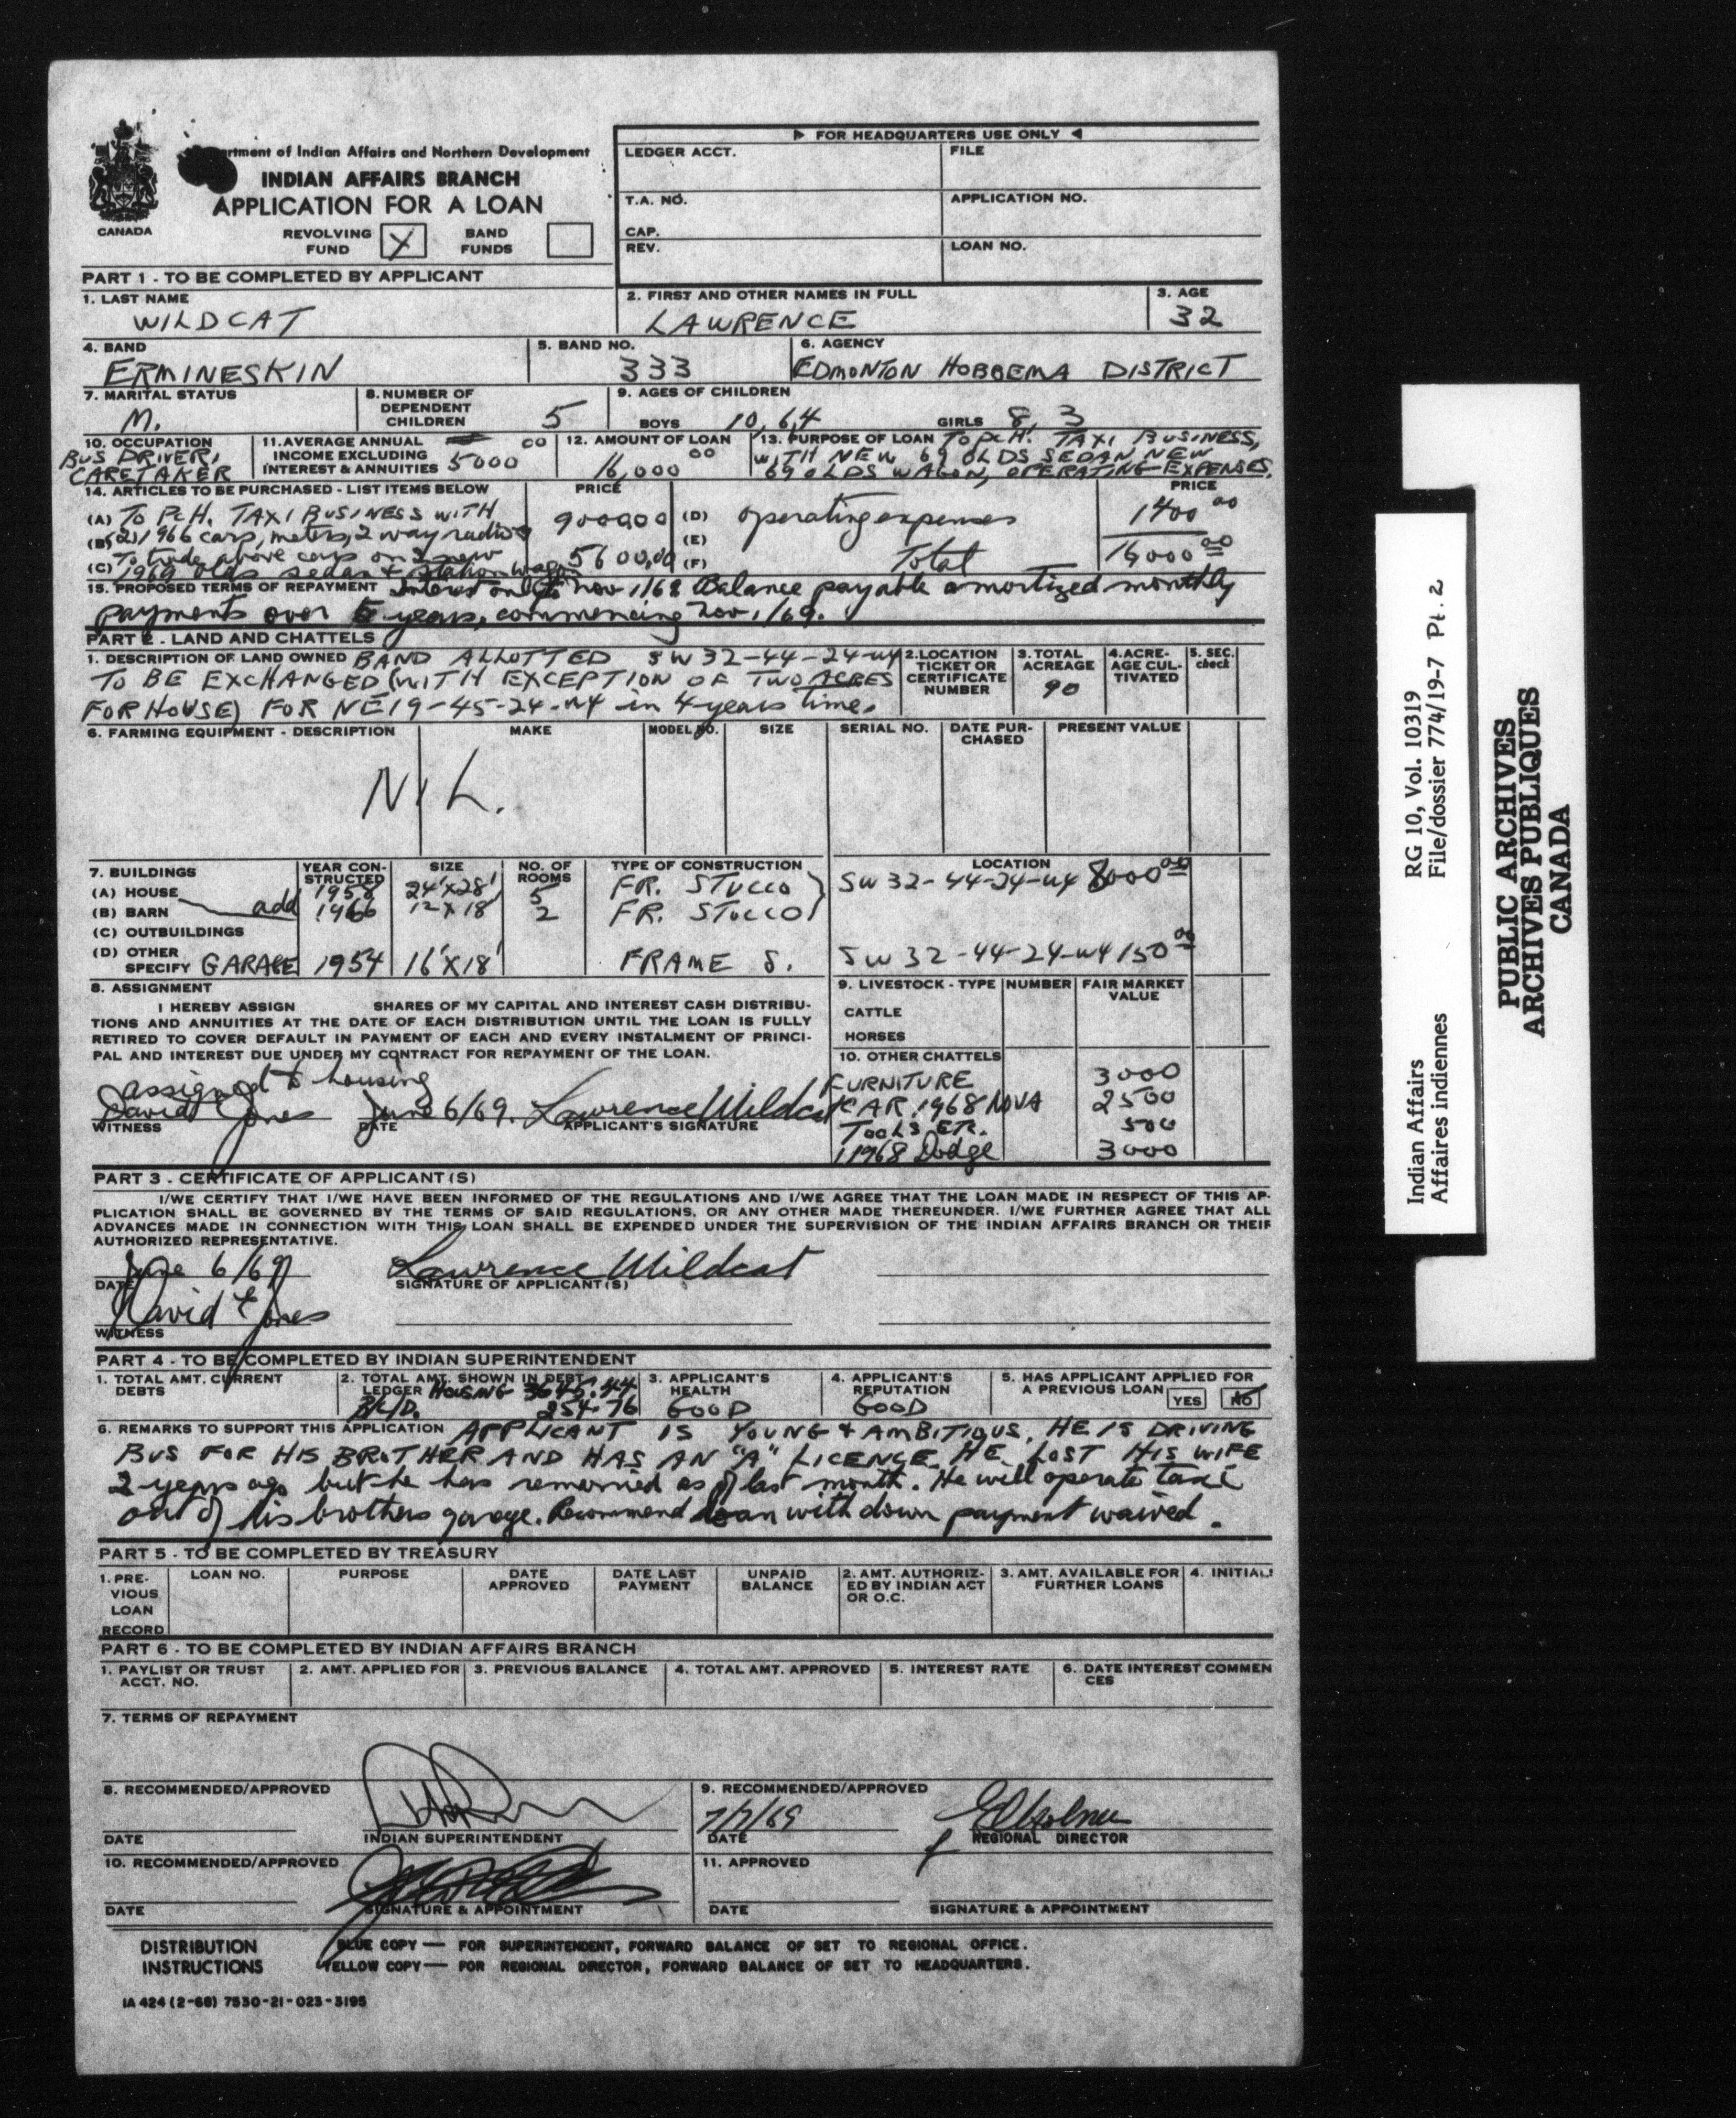 Department of Indian Affairs and Northern Development
INDIAN AFFAIRS BRANCH
APPLICATION FOR A LOAN
CANADA
REVOLVING FUND X BAND FUNDS
FOR HEADQUARTERS USE ONLY
LEDGER ACCT. FILE
T.A. NO. APPLICATION NO.
CAP.
REV. LOAN NO.
PART 1 - TO BE COMPLETED BY APPLICANT
1. LAST NAME 2. FIRST AND OTHER NAMES IN FULL 3. AGE
WILDCAT LAWRENCE 32
4. BAND 5. BAND NO. 6. AGENCY
ERMINESKIN 333 EDMONTON HOBBEMA DISTRICT
7. MARITAL STATUS 8. NUMBER OF DEPENDENT CHILDREN 9. AGES OF CHILDREN
M. 5 BOYS 10, 6, 4 GIRLS 8, 3
10. OCCUPATION 11. AVERAGE ANNUAL INCOME EXCLUDING INTEREST & ANNUITIES 12. AMOUNT OF LOAN 13. PURPOSE OF LOAN
BUS DRIVER, CARETAKER 5000 00 16,000 00 TO PCH. TAXI BUSINESS,
WITH NEW 69 OLDS SEDAN NEW
69 OLDS WAGON, OPERATING EXPENSES.
14. ARTICLES TO BE PURCHASED - LIST ITEMS BELOW PRICE PRICE
(A) TO PCH. TAXI BUSINESS WITH 9000.00 (D) operating expenses 1400 00
(B) (2) 1966 cars, meters, 2 way radios (E)
(C) To trade above cars on 2 new 5600.00 (F) Total 16000 00
1969 olds sedan + station wagon
15. PROPOSED TERMS OF REPAYMENT Interest only to Nov 1/68 Balance payable amortized monthly
payments over 5 years, commencing Nov. 1/69.
PART 2 - LAND AND CHATTELS
1. DESCRIPTION OF LAND OWNED BAND ALLOTTED SW 32-44-24-W4
TO BE EXCHANGED (WITH EXCEPTION OF TWO ACRES
FOR HOUSE) FOR NE 19-45-24-W4 in 4 years time.
2. LOCATION TICKET OR CERTIFICATE NUMBER 3. TOTAL ACREAGE 90 4. ACREAGE CULTIVATED 5. SEC. check
6. FARMING EQUIPMENT - DESCRIPTION MAKE MODEL NO. SIZE SERIAL NO. DATE PURCHASED PRESENT VALUE
NIL.
7. BUILDINGS YEAR CONSTRUCTED SIZE NO. OF ROOMS TYPE OF CONSTRUCTION LOCATION
(A) HOUSE 1958 24'x28' 5 FR. STUCCO SW 32-44-24-W4 8000 00
(B) BARN add 1966 12 x 18' 2 FR. STUCCO
(C) OUTBUILDINGS
(D) OTHER SPECIFY GARAGE 1954 16'x18' FRAME S. SW 32-44-24-W4 150 00
8. ASSIGNMENT
I HEREBY ASSIGN SHARES OF MY CAPITAL AND INTEREST CASH DISTRIBU-
TIONS AND ANNUITIES AT THE DATE OF EACH DISTRIBUTION UNTIL THE LOAN IS FULLY
RETIRED TO COVER DEFAULT IN PAYMENT OF EACH AND EVERY INSTALMENT OF PRINCI-
PAL AND INTEREST DUE UNDER MY CONTRACT FOR REPAYMENT OF THE LOAN.
assigned to housing
David E Jones June 6/69. Lawrence Wildcat
WITNESS DATE APPLICANT'S SIGNATURE
9. LIVESTOCK - TYPE NUMBER FAIR MARKET VALUE
CATTLE
HORSES
10. OTHER CHATTELS
FURNITURE 3000
1 CAR 1968 NOVA 2500
TOOLS ETC. 500
1 1968 Dodge 3000
PART 3 - CERTIFICATE OF APPLICANT(S)
I/WE CERTIFY THAT I/WE HAVE BEEN INFORMED OF THE REGULATIONS AND I/WE AGREE THAT THE LOAN MADE IN RESPECT OF THIS AP-
PLICATION SHALL BE GOVERNED BY THE TERMS OF SAID REGULATIONS, OR ANY OTHER MADE THEREUNDER. I/WE FURTHER AGREE THAT ALL
ADVANCES MADE IN CONNECTION WITH THIS LOAN SHALL BE EXPENDED UNDER THE SUPERVISION OF THE INDIAN AFFAIRS BRANCH OR THEIR
AUTHORIZED REPRESENTATIVE.
June 6/69 Lawrence Wildcat
DATE SIGNATURE OF APPLICANT(S)
David E Jones
WITNESS
PART 4 - TO BE COMPLETED BY INDIAN SUPERINTENDENT
1. TOTAL AMT. CURRENT DEBTS 2. TOTAL AMT. SHOWN IN DEBT LEDGER HOUSING 3645.44 3. APPLICANT'S HEALTH 4. APPLICANT'S REPUTATION 5. HAS APPLICANT APPLIED FOR A PREVIOUS LOAN YES NO
254.76 GOOD GOOD
6. REMARKS TO SUPPORT THIS APPLICATION APPLICANT IS YOUNG & AMBITIOUS. HE IS DRIVING
BUS FOR HIS BROTHER AND HAS AN "A" LICENCE. HE LOST HIS WIFE
2 years ago but he has remarried as of last month. He will operate taxi
out of his brothers garage. Recommend loan with down payment waived.
PART 5 - TO BE COMPLETED BY TREASURY
1. PREVIOUS LOAN RECORD LOAN NO. PURPOSE DATE APPROVED DATE LAST PAYMENT UNPAID BALANCE 2. AMT. AUTHORIZED BY INDIAN ACT OR O.C. 3. AMT. AVAILABLE FOR FURTHER LOANS 4. INITIALS
PART 6 - TO BE COMPLETED BY INDIAN AFFAIRS BRANCH
1. PAYLIST OR TRUST ACCT. NO. 2. AMT. APPLIED FOR 3. PREVIOUS BALANCE 4. TOTAL AMT. APPROVED 5. INTEREST RATE 6. DATE INTEREST COMMENCES
7. TERMS OF REPAYMENT
8. RECOMMENDED/APPROVED 9. RECOMMENDED/APPROVED
7/7/69
DATE INDIAN SUPERINTENDENT DATE REGIONAL DIRECTOR
10. RECOMMENDED/APPROVED 11. APPROVED
DATE SIGNATURE & APPOINTMENT DATE SIGNATURE & APPOINTMENT
DISTRIBUTION INSTRUCTIONS
BLUE COPY — FOR SUPERINTENDENT, FORWARD BALANCE OF SET TO REGIONAL OFFICE.
YELLOW COPY — FOR REGIONAL DIRECTOR, FORWARD BALANCE OF SET TO HEADQUARTERS.
IA 424 (2-68) 7530-21-023-3195
Indian Affairs RG 10, Vol. 10319
Affaires indiennes File/dossier 774/19-7 Pt. 2
PUBLIC ARCHIVES
ARCHIVES PUBLIQUES
CANADA